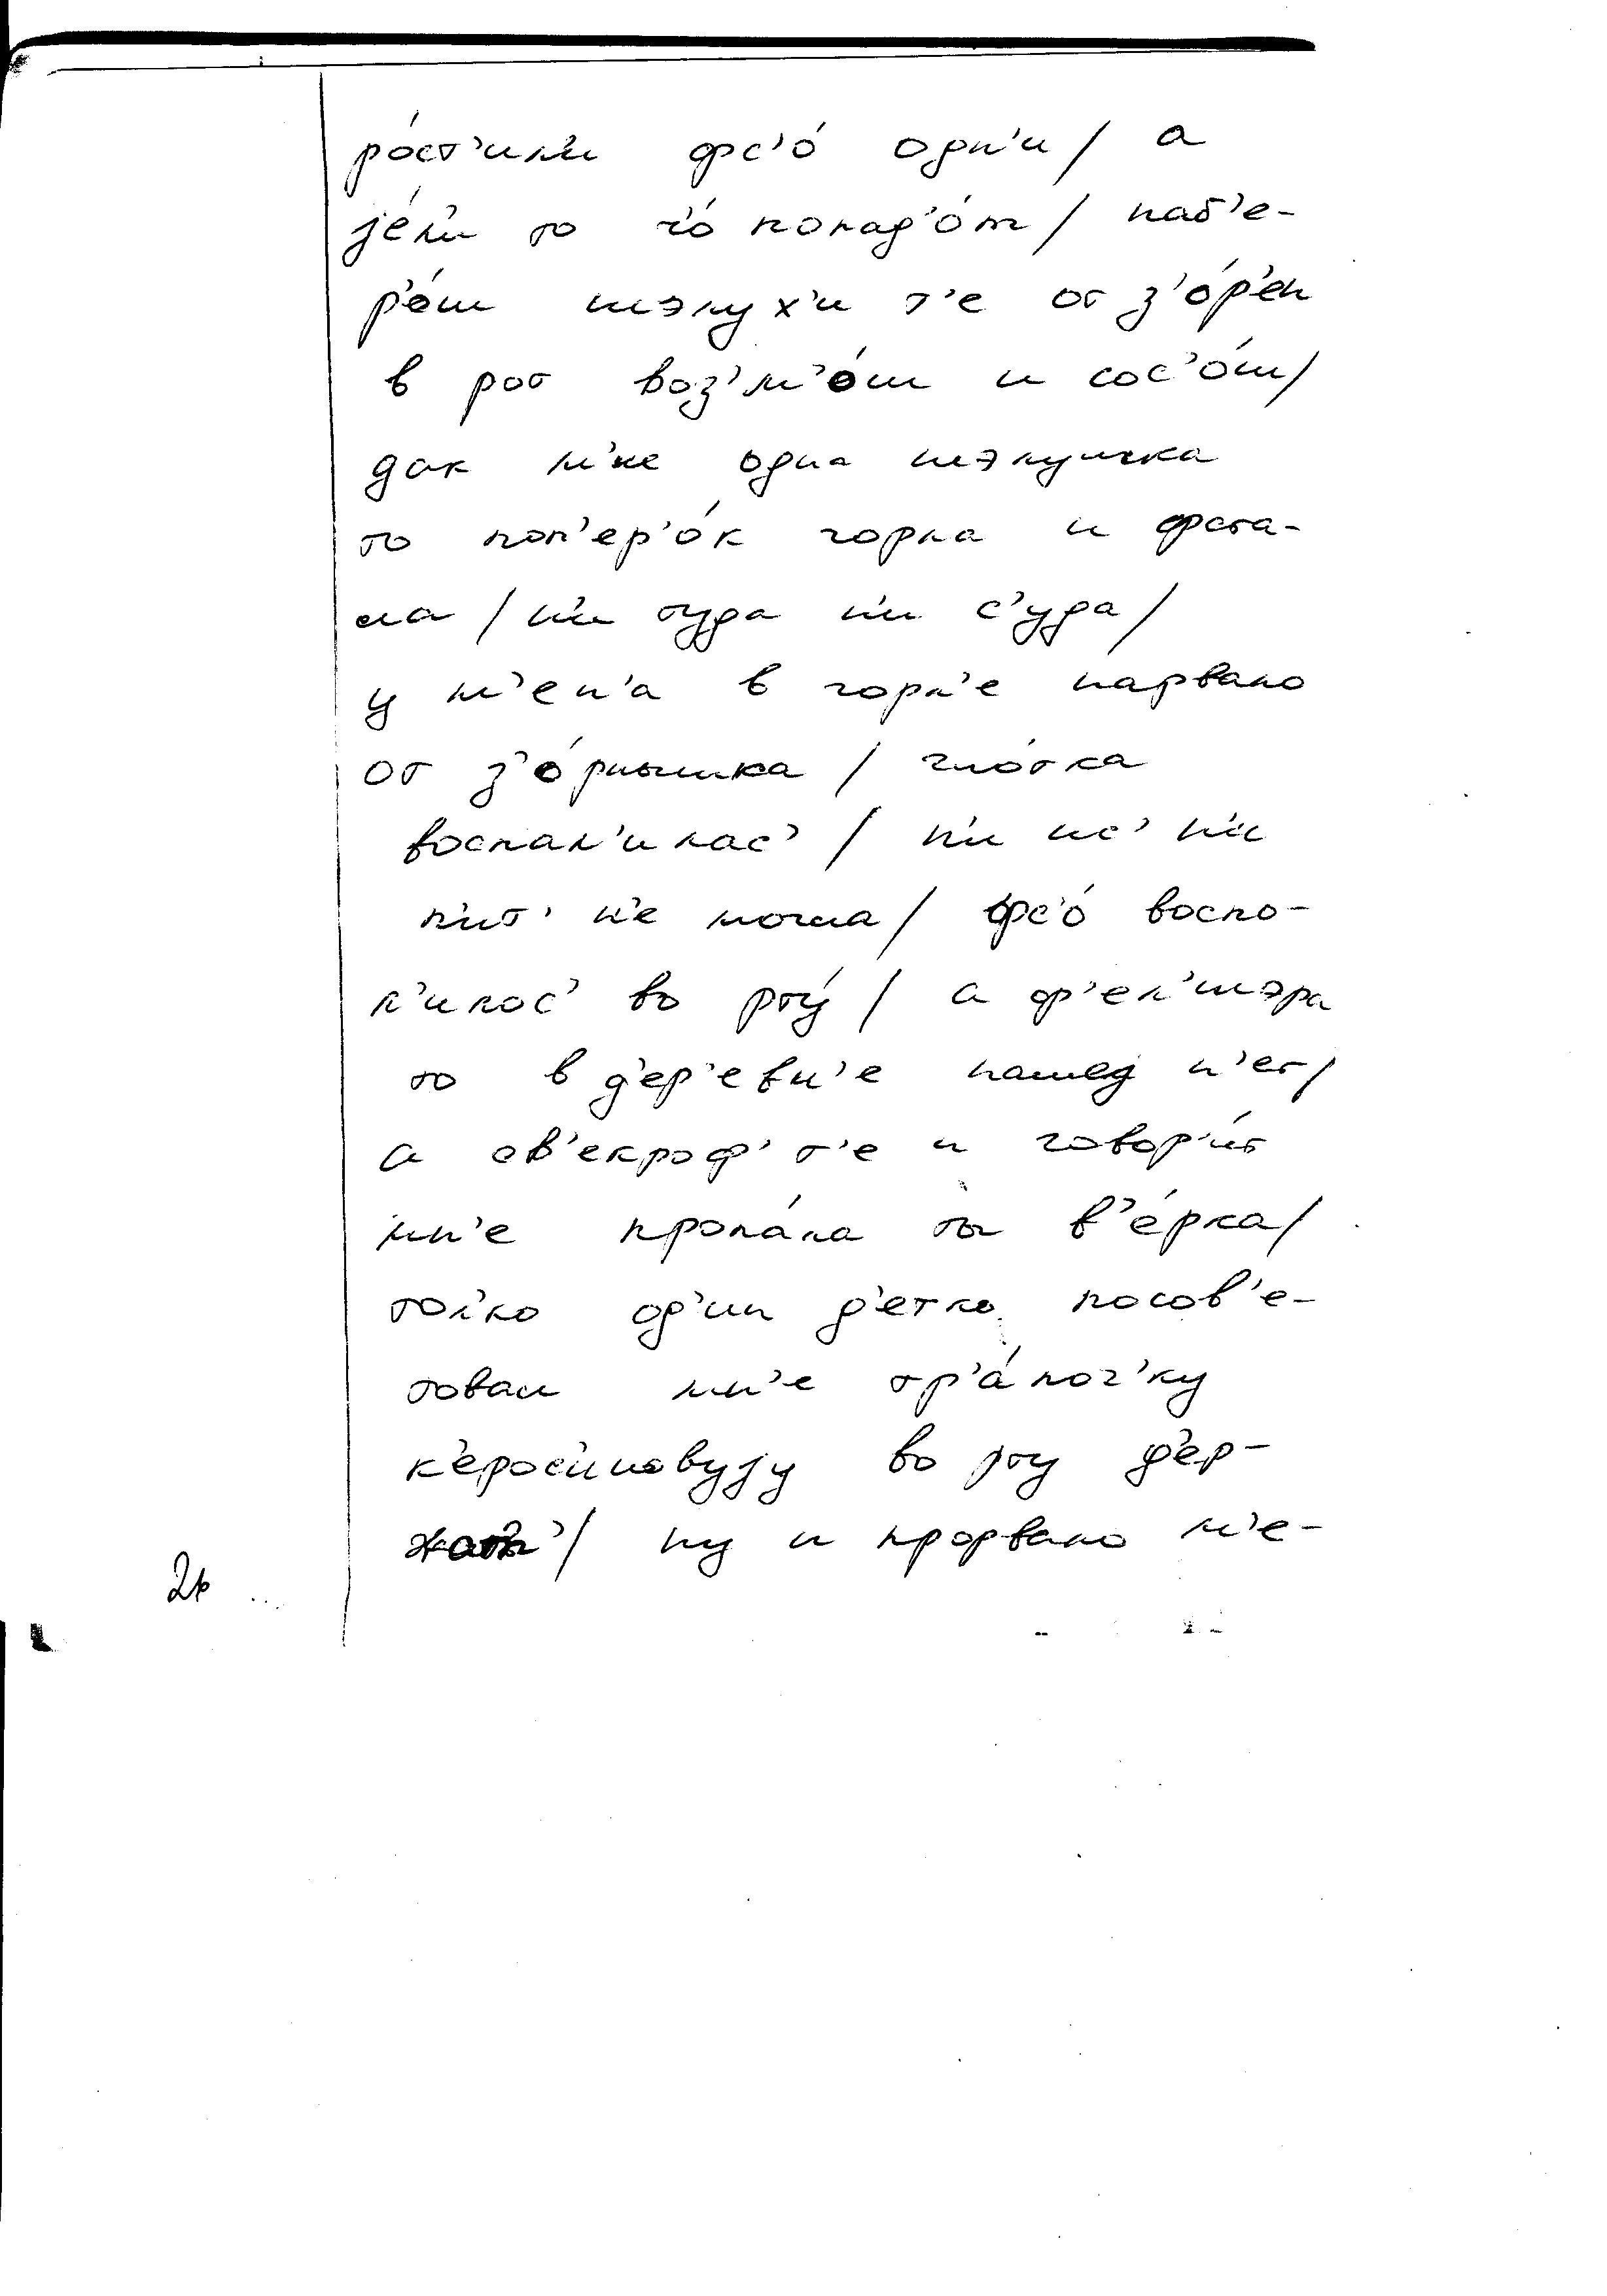 ро́ст'ил'и фс'о́ одн'и / а
jе́л'и то ч'о́ попад'о́т / наб'е-
р'о́ш шэлух'и т'е от з'о́р'ен
в рот воз'м'о́ш и сос'о́ш /
дак м'не одна шэлушка
то поп'ер'о́к горла и фста-
ла / н'и туда н'и с'уда /
у м'ен'а в горл'е нарвало
от з'о́рнышка / гло́тка
воспал'илас' / н'и ис' н'и
пит' н'е могла / фс'о́ воспо-
л'илос' во рту́ / а ф'ел'шэра
то в д'ер'евн'е нашед н'ет /
а св'екроф' т'е и говор'и́т
мн'е пропа́ла ты в'е́рка /
тол'ко од'ин д'етко посов'е-
товал мн'е тр'а́поч'ку
к'ерос'иновуjу во рту д'ер-
жат' / ну и прорвало м'е-